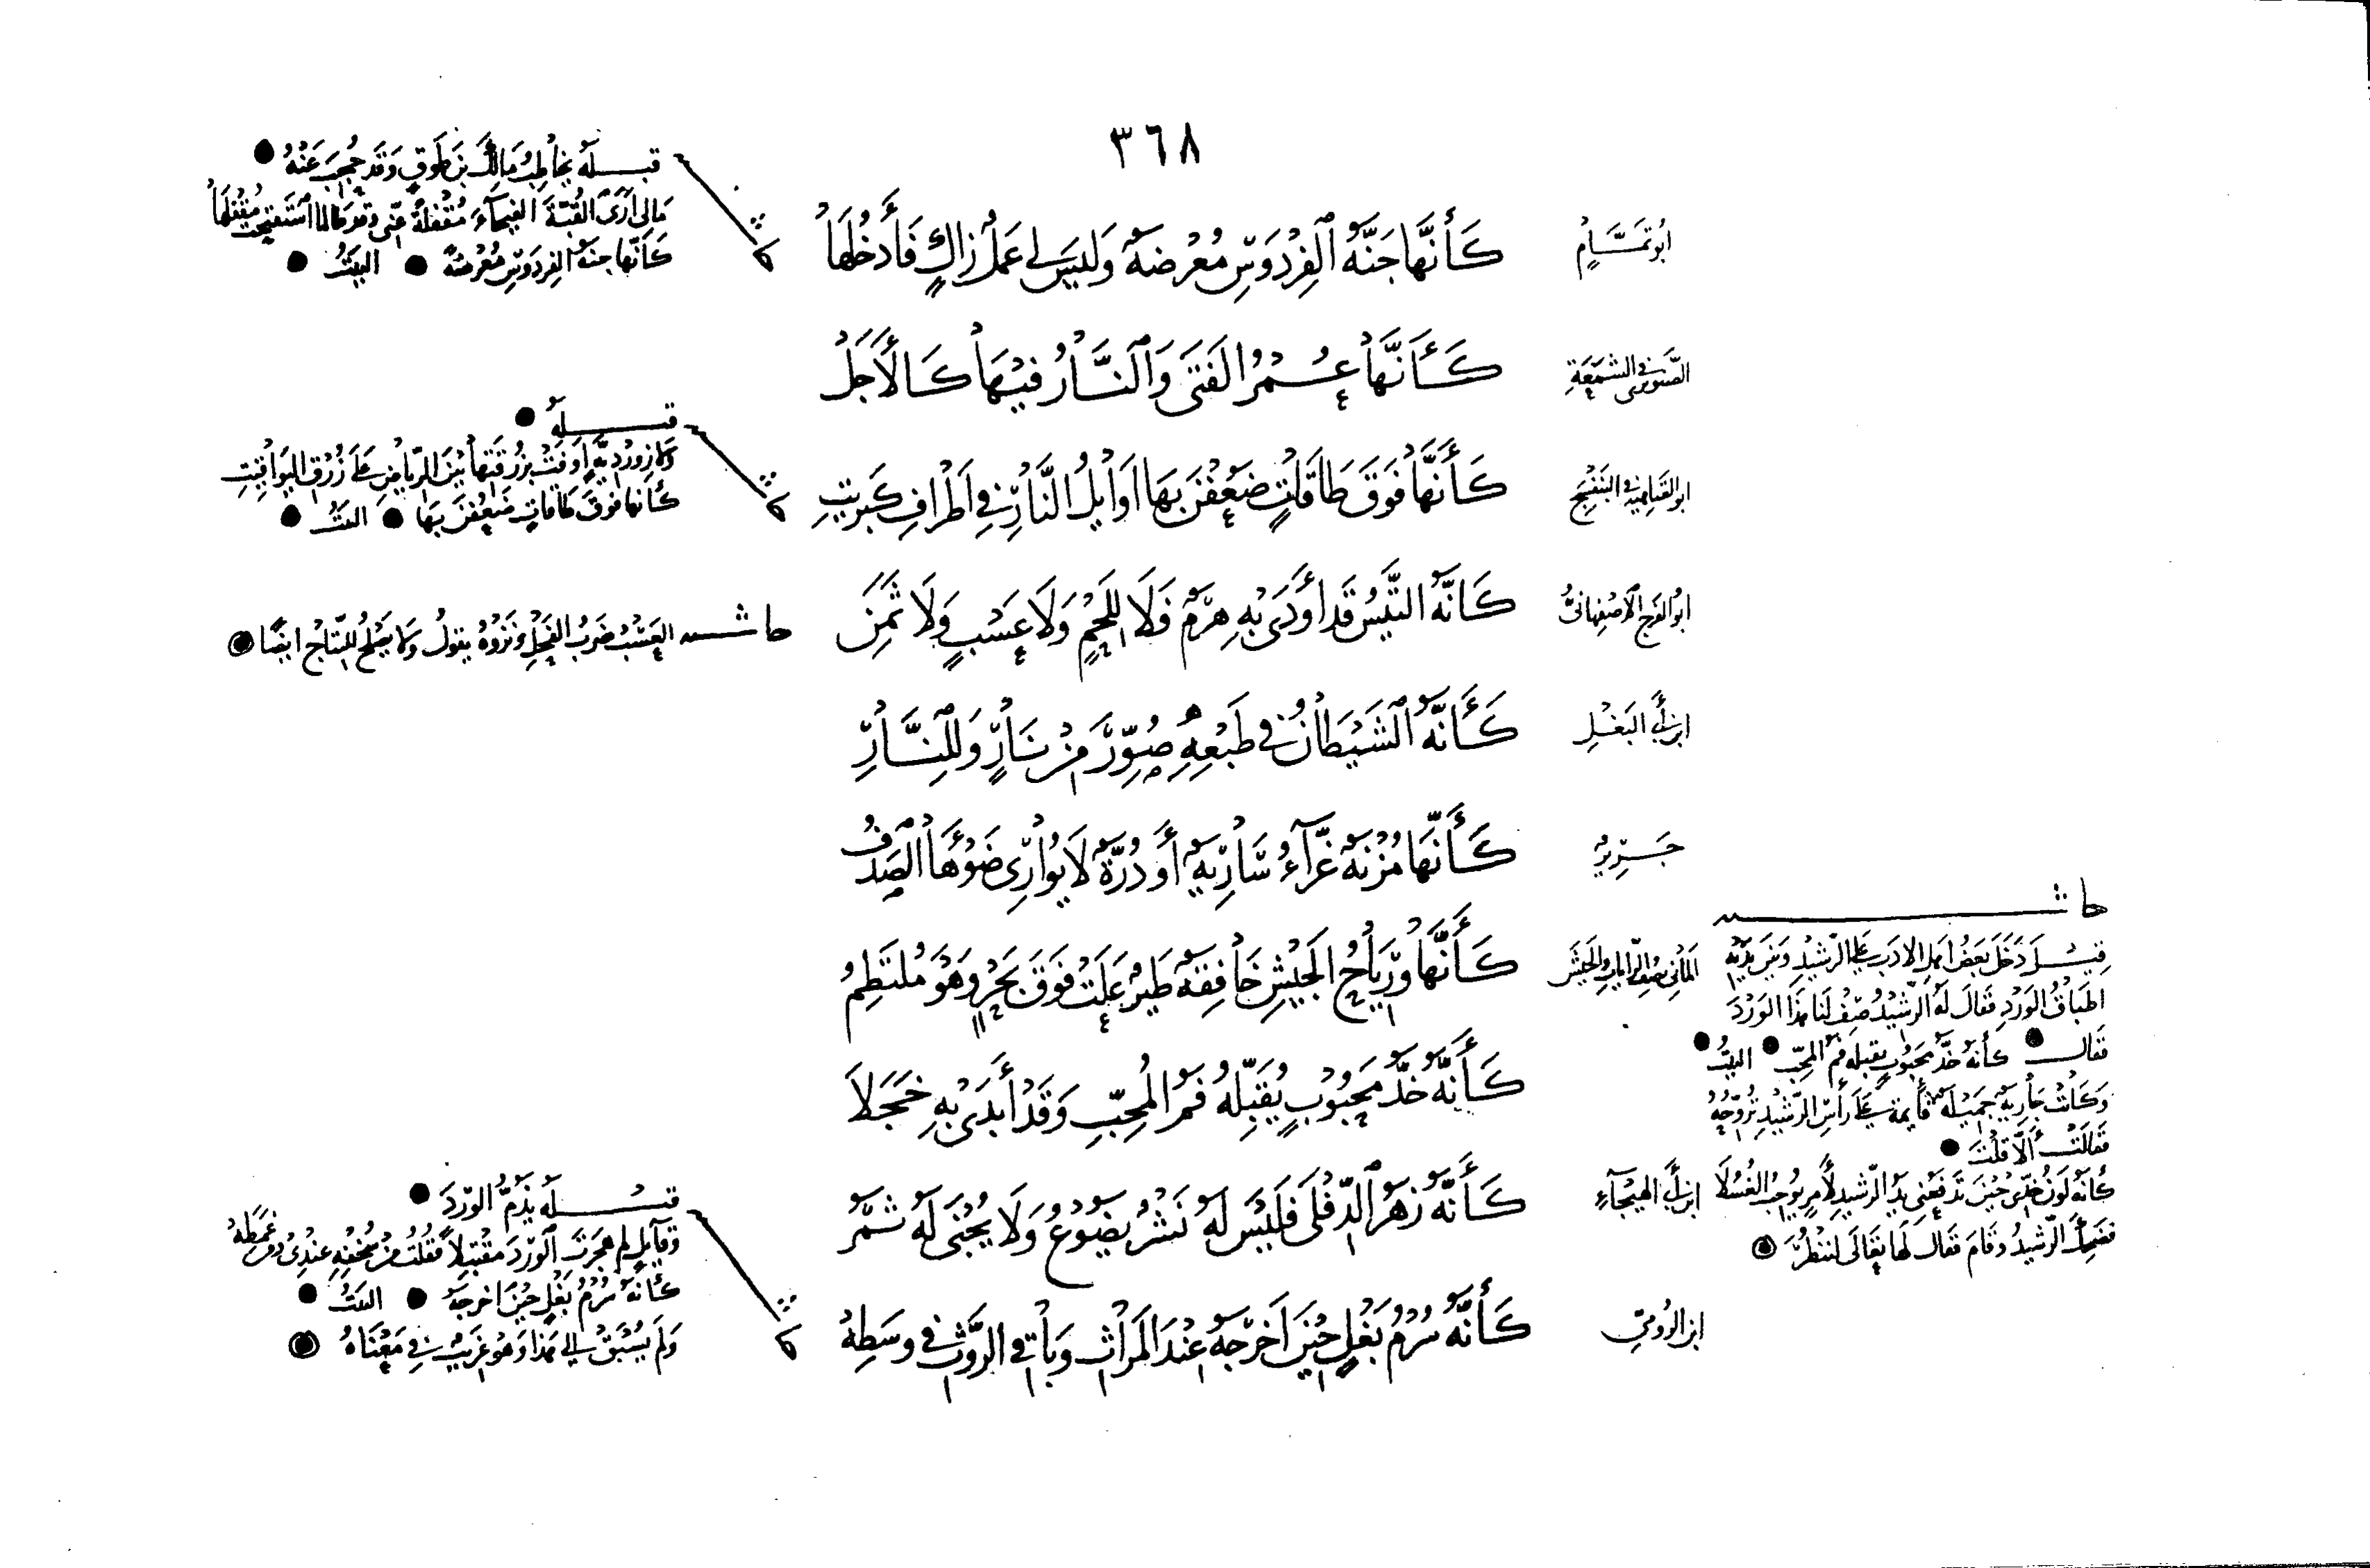 ٣٦٨
أبو تمام
كَأَنَّهَا جَنَّةُ الفِرْدَوْسِ مُعْرِضَةً وَلَيْسَ لِي عَمَلٌ زَاكٍ فَأَدْخُلَهَا
قبله يخاطب مالك بن طوق وقد حُجِبَ عَنْهُ
مالي أرى القبة الفيحاء مقفلة عني وقد طالما استفتحت مقفلها
كأنها جنة الفردوس معرضة البيت
الصنوبري في الشمعة
كَأَنَّهَا عُمْرُ الفَتَى وَالنَّارُ فِيهَا كَالأَجَلْ
ابو القاهية في البنفسج
كَأَنَّهَا فَوْقَ طَاقَاتٍ ضَعُفْنَ بِهَا أَوَائِلُ النَّارِ فِي أَطْرَافِ كِبْرِيتِ
قبله
ولازوردية أوفت بزرقتها بين الرياض على زرق اليواقيت
كأنها فوق طاقات ضعفن بها البيت
ابو الفرج الاصفهاني
كَأَنَّهُ التَّيْسُ قَدْ أَوْدَى بِهِ هَرَمٌ فَلَا لِلَحْمٍ وَلَا عَسْبٍ وَلَا ثَمَنِ
حاشية العسب ضرب الفحل ونزوه يقول ولا يصلح للنتاج ايضا
ابن أبي البغل
كَأَنَّهُ الشَّيْطَانُ فِي طَبْعِهِ صُوِّرَ مِنْ نَارٍ وَلِلنَّارِ
جرير
كَأَنَّهَا مُزْنَةٌ غَرَّاءُ سَارِيَةٌ أَوْ دُرَّةٌ لَا يُوَارِي ضَوْءَهَا الصَّدَفُ
يصف الرايات والجيش
كَأَنَّهَا وَرِيَاحُ الجَيْشِ خَافِقَةٌ طَيْرٌ عَلَتْ فَوْقَ بَحْرٍ وَهْوَ مُلْتَطِمُ
كَأَنَّهُ خَدُّ مَحْبُوبٍ يُقَبِّلُهُ فَمُ المُحِبِّ وَقَدْ أَبْدَى بِهِ خَجَلَا
حاشية
قيل دخل بعض اهل الادب على الرشيد وبين يديه
اطباق الورد فقال له الرشيد صف لنا هذا الورد
فقال كأنه خد محبوب يقبله فم المحب البيت
وكانت جارية جميلة قائمة على رأس الرشيد تروحه
فقالت ألا قلت
كأنه لون خدي حين تدفعني يد الرشيد لأمر يوجب الغسلا
فضحك الرشيد وقام فقال لها تعالي لننظر
ابن أبي الهيجاء
كَأَنَّهُ زَهْرُ الدِّفْلَى فَلَيْسَ لَهُ نَشْرٌ يَضُوعُ وَلَا يُجْنَى لَهُ ثَمَرُ
ابن الرومي
كَأَنَّهُ سُرْمُ بَغْلٍ حِينَ أَخْرَجَهُ عِنْدَ المَرَاثِ وَبَاقِي الرَّوْثِ فِي وَسَطِهْ
قبله يذم الورد
وقائل لم هجرت الورد مقتبلا فقلت من سخفه عندي ومن غمطه
كأنه سرم بغل حين اخرجه البيت
ولم يسبق الى هذا وهو غريب في معناه